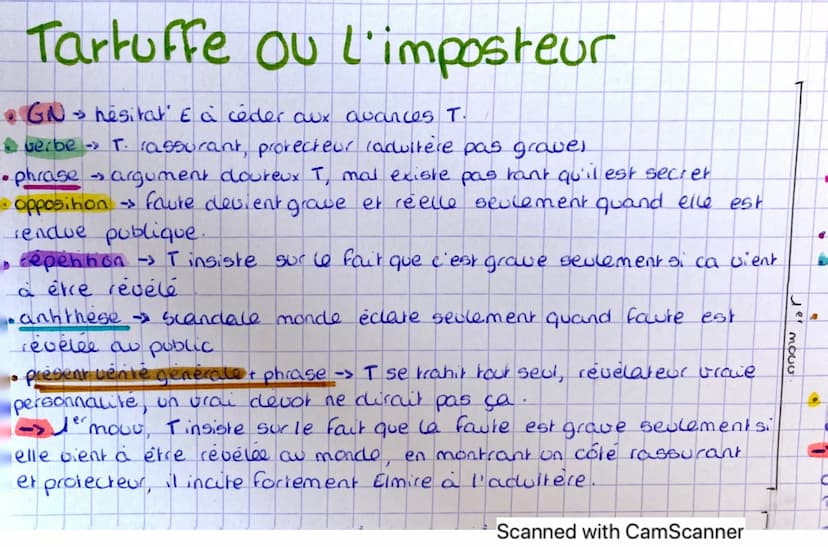 Tartuffe ou l'imposteur
• GN → hésitat° E à céder aux avances T.
• verbe → T. rassurant, protecteur (adultère pas grave)
• phrase → argument douteux T, mal existe pas tant qu'il est secret
• opposition → faute devient grave et réelle seulement quand elle est
rendue publique.
• répétition → T insiste sur le fait que c'est grave seulement si ca vient
à être révélé
• antithèse → scandale monde éclate seulement quand faute est
révélée au public
• présent vérité générale + phrase → T se trahit tout seul, révélateur vraie
personnalité, un vrai dévot ne dirait pas ça.
→ 1er mouv, T insiste sur le fait que la faute est grave seulement si
elle vient à être révélée au monde, en montrant un côté rassurant
et protecteur, il incite fortement Elmire à l'adultère.
1er mouv.
Scanned with CamScanner